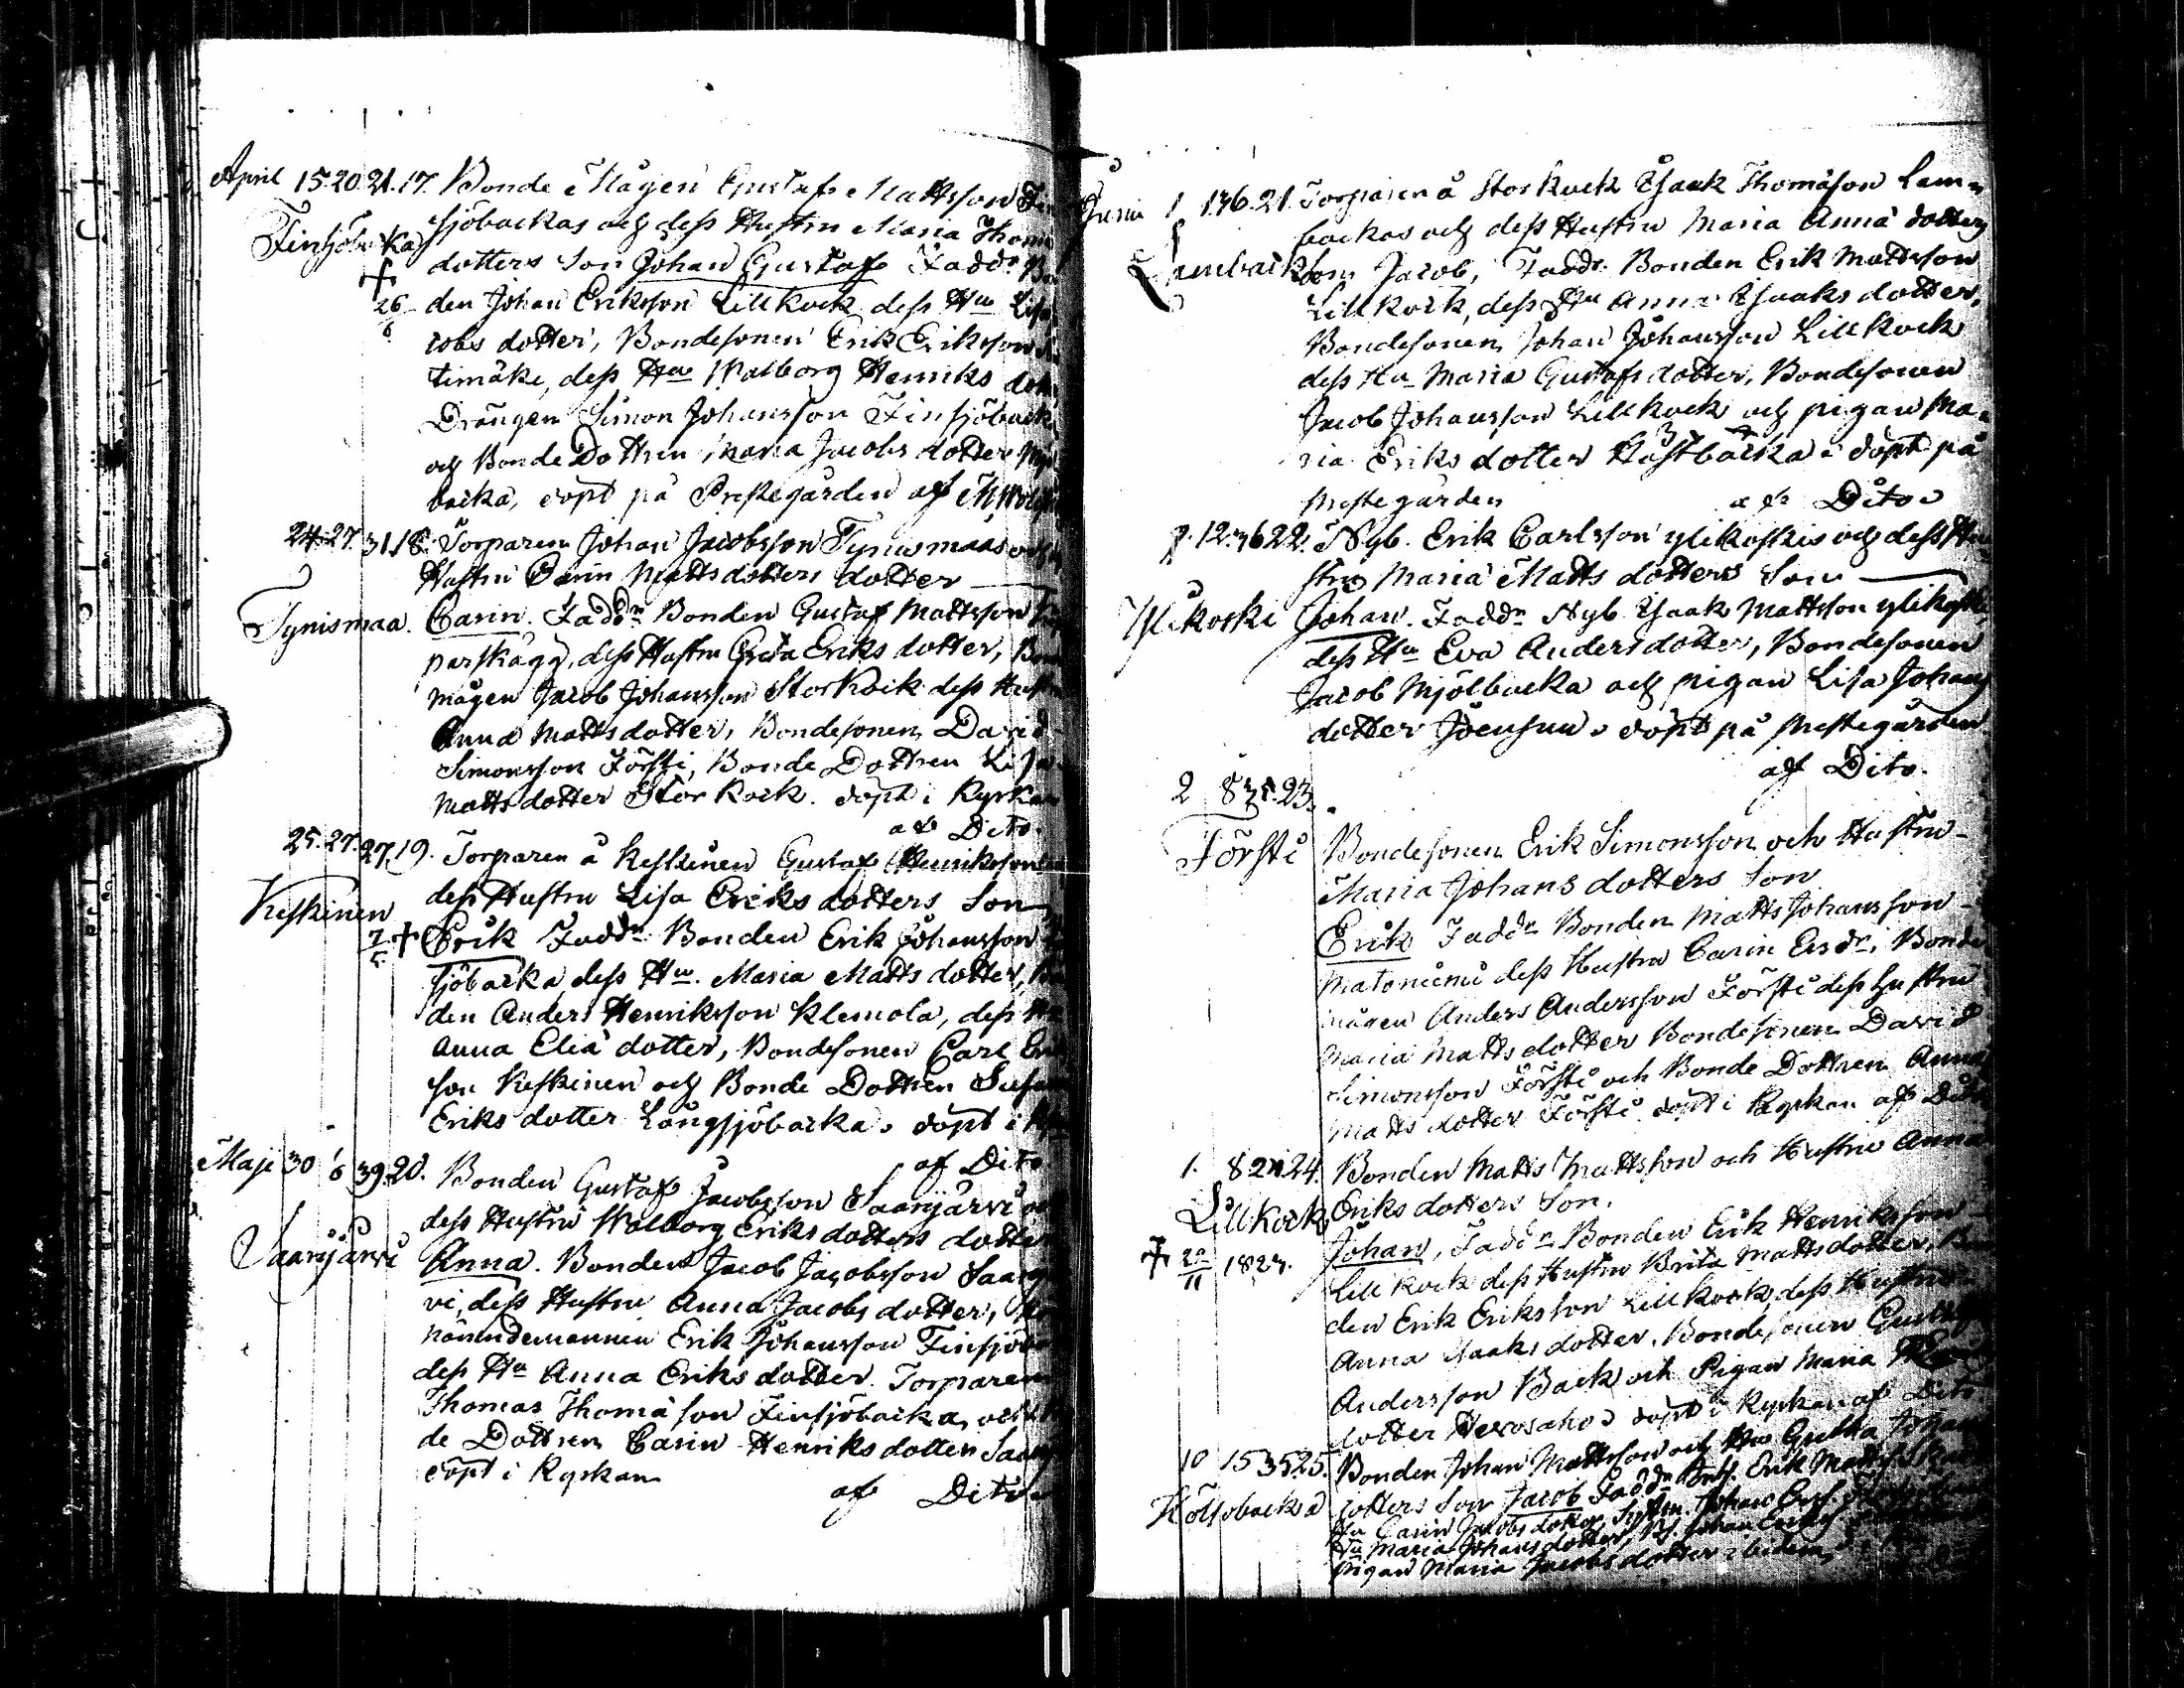 April 15. 20. 21. 17. Bonde Mågen Gustaf Mattsson Fin
Finsjöbacka sjöbackas och dess Hustru Maria Thomæ
+ dotters Son Johan Gustaf Faddr Bo
26/6 den Johan Eriksson Lillkock dess Hu Lisa
cobs dotter, Bondesonen Erik Eriksson
timäki, dess Hu Walborg Henriks dott
Drängen Simon Johansson Finsjöbacka
och Bonde Dottren Maria Jacobs dotter
backa, döpt på Prestegården af
24. 27. 31. 18. Torparen Johan Jacobsson Tynismaas och
Hustru Carin Matts dotters dotter
Tynismaa. Carin. Faddr Bonden Gustaf Mattsson
parskägg, dess Hustru Greta Eriks dotter, Bon
mågen Jacob Johansson Storkock dess Hustr
Anna Matts dotter, Bondesonen David
Simonsson Försti, Bonde Dottren Lisa
Matts dotter Storkock. döpt i Kyrkan
af Dito.
25. 27. 27. 19. Torparen å Keskinen Gustaf Henriksson
Keskinen dess Hustru Lisa Eriks dotters Son
7/5 + Erik Faddr Bonden Erik Johansson
sjöbacka dess Hu. Maria Matts dotter, Bon
den Anders Henriksson Klemola, dess Hu
Anna Eliæ dotter, Bondesonen Carl Erik
son Keskinen och Bonde Dottren Susan
Eriks dotter Långsjöbacka. döpt i
af Dito
Maji 30 6 39. 20. Bonden Gustaf Jacobsson Saarijärvi och
dess Hustru Walborg Eriks dotters dotter
Saarijärvi Anna. Bonden Jacob Jacobsson Saarijär
vi, dess Hustru Anna Jacobs dotter,
Nämndemannen Erik Johansson Finsjöba
dess Hu Anna Eriks dotter. Torparen
Thomas Thomæson Finsjöbacka, och
de Dottren Carin Henriks dotter Saari
döpt i Kyrkan
af Dito
Junii 1 1. 36. 21. Torparen å Storkock Isaak Thomæson Lam
backas och dess Hustru Maria Anna dotters
Lambacka Son Jacob, Faddr. Bonden Erik Mattsson
Lillkock, dess Hu Anna Isaaks dotter,
Bondesonen Johan Johansson Lillkock
dess Hu Maria Gustafs dotter, Bondesonen
Jacob Johansson Lillkock och pigan Ma
ria Eriks dotter Hästbacka döpt på
Prestegården af Dito
12. 36 22. Nyb. Erik Carlsson Ylikoskis och dess Hu
stru Maria Matts dotters Son
Ylikoski Johan. Faddr Nyb Isaak Mattsson Ylikoski,
dess Hu Eva Anders dotter, Bondesonen
Jacob Mjölbacka och pigan Lisa Johans
dotter Joensuu. döpt på Prestegården
af Dito.
2 8 35. 23.
Försti Bondesonen Erik Simonsson och Hustru
Maria Johans dotters Son
Erik Faddr Bonden Matts Johansson
Matoniemi dess Hustru Carin Ersdr, Bonde
mågen Anders Andersson Försti dess Hustru
Maria Matts dotter Bondesonen David
Simonsson Försti och Bonde Dottren Anna
Matts dotter Försti döpt i Kyrkan af Dito
1. 8 24. Bonden Matts Mattsson och Hustru Anna
Lillkock Eriks dotters Son.
Johan, Faddr Bonden Erik Henriksson
+ 22/11 1827. Lillkock dess Hustru Brita Matts dotter, Bon
den Erik Eriksson Lillkock, dess Hustru
Anna Isaaks dotter, Bondesonen Gustaf
Andersson Back och Pigan Maria
dotter döpt i Kyrkan af Dito
10 15 35 25. Bonden Johan Mattsson och Hu Gretha Johans
dotters Son Jacob Faddr Erik Matts
Hu Carin Jacobs dotter, Johan
Hu Maria Johans dotter, Johan
Pigan Maria Jacobs dotter ibidem